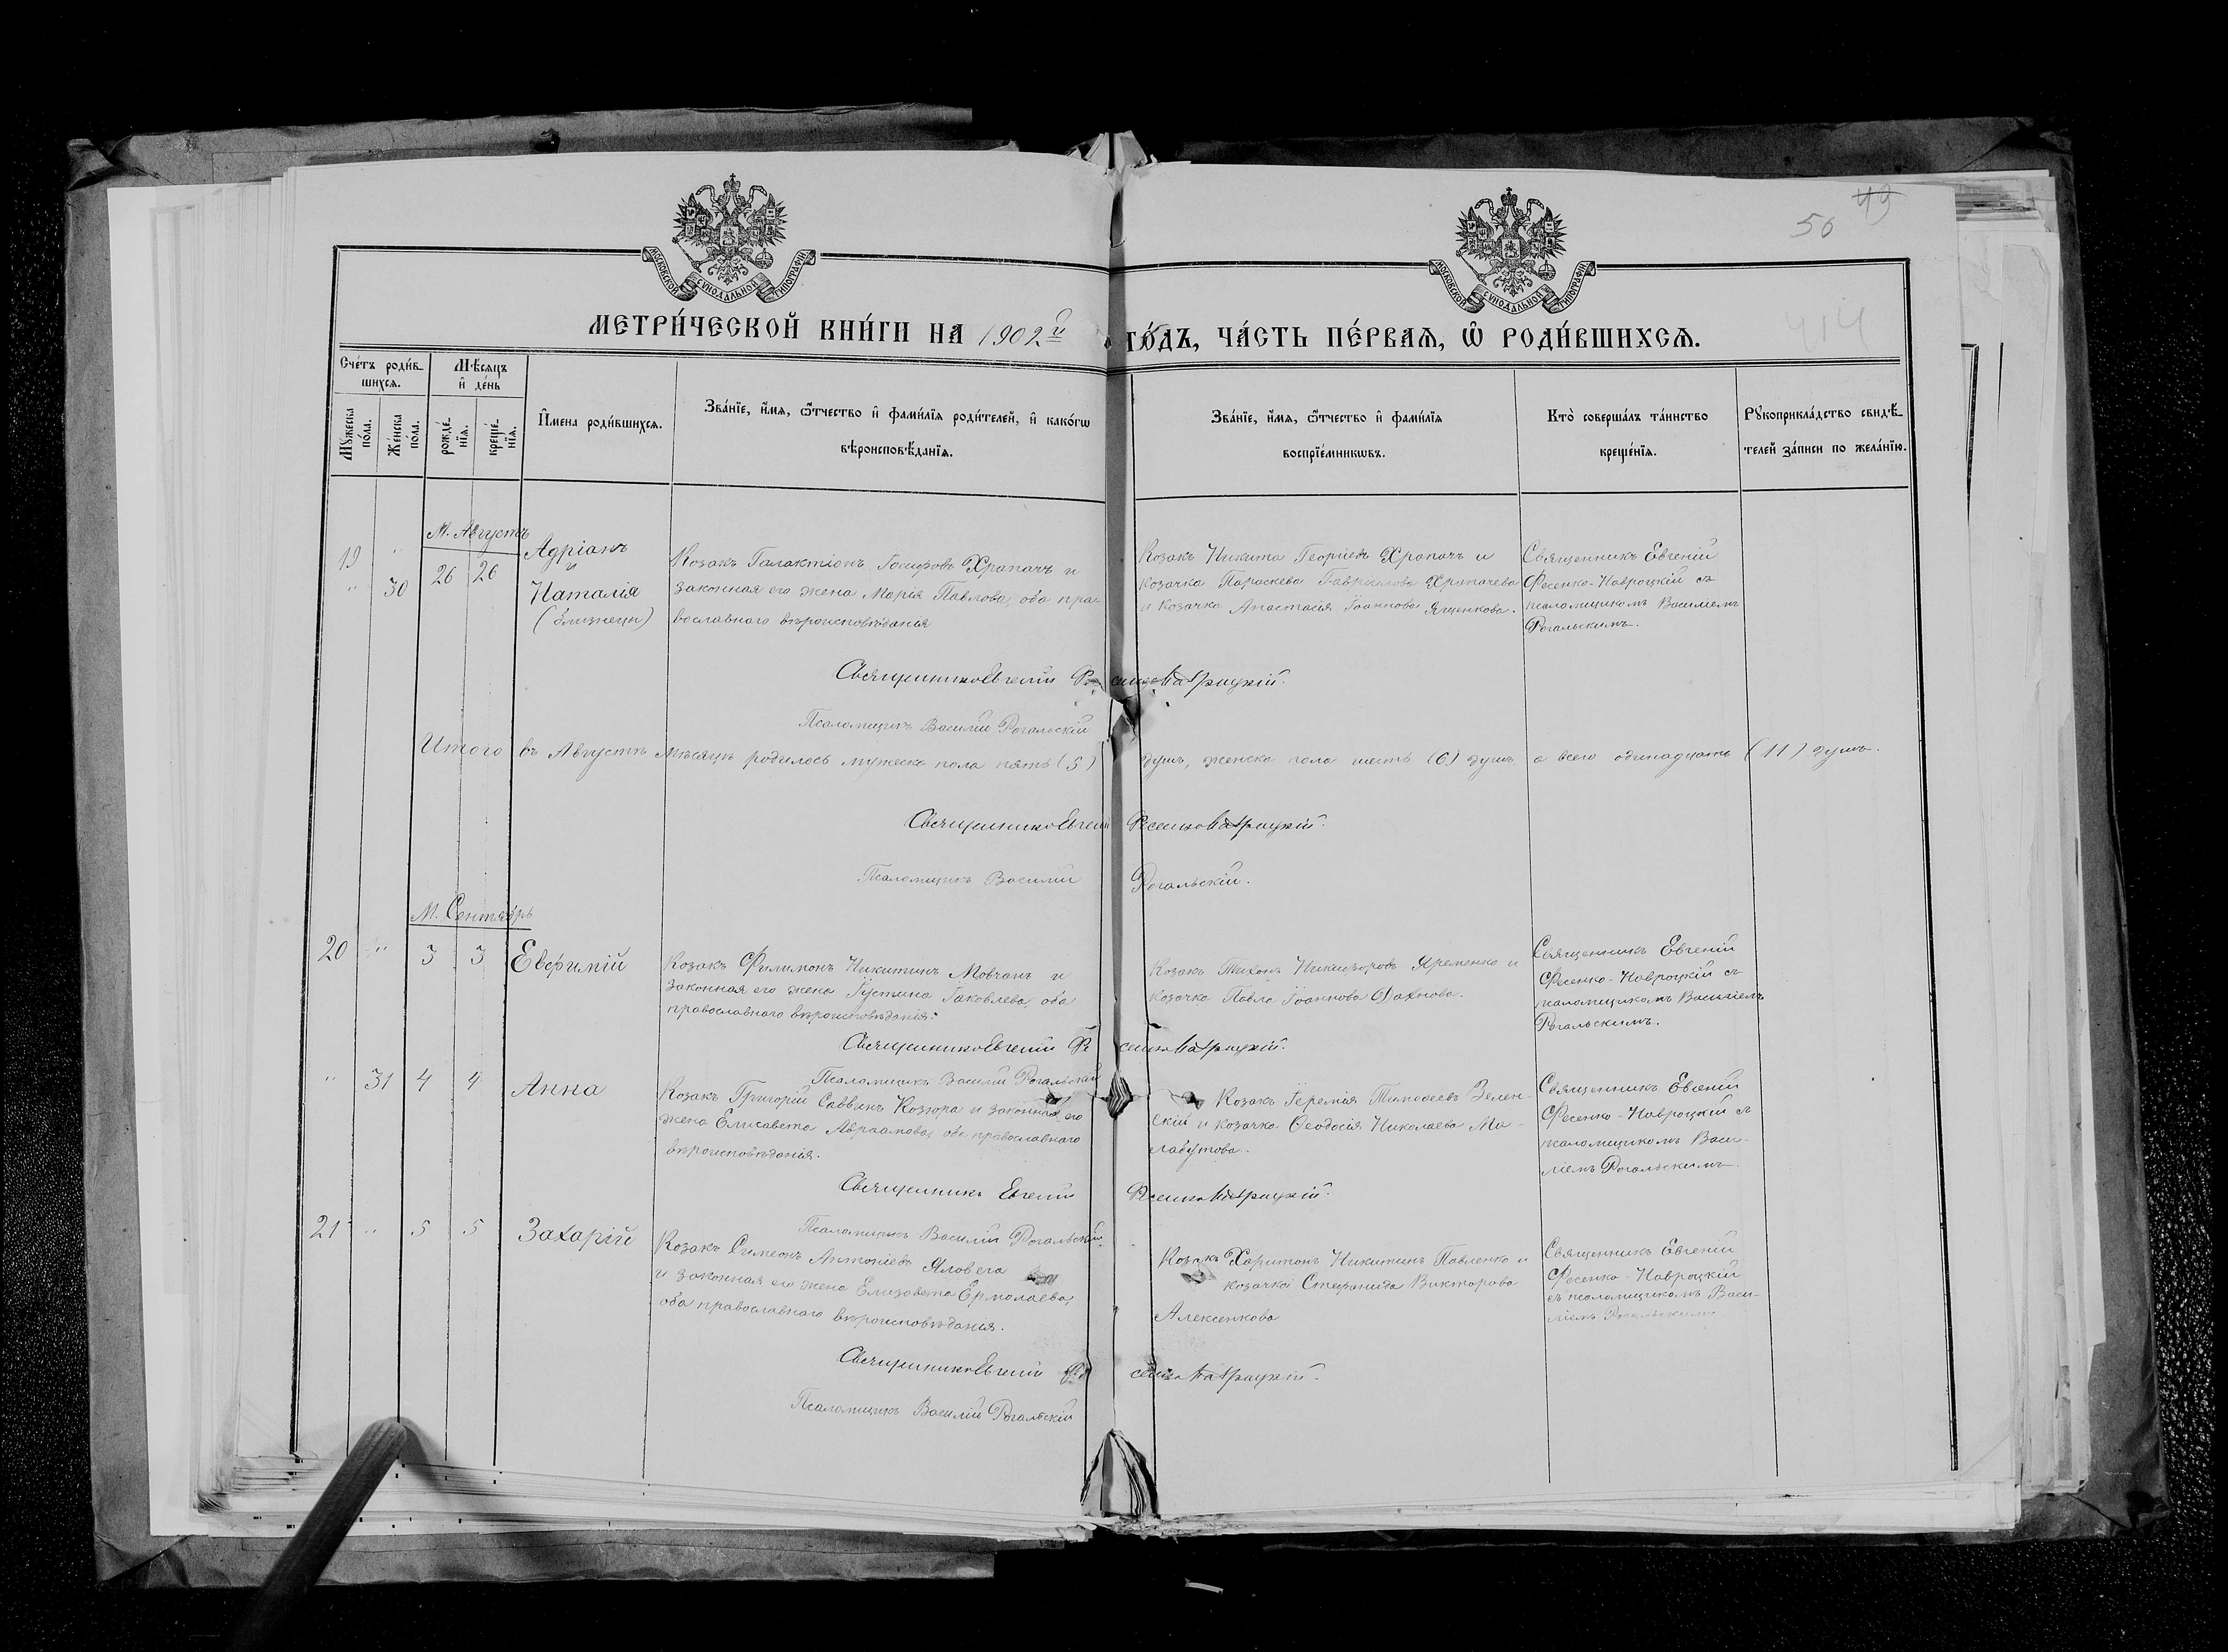 49
50
414
МОСКОВСКОЙ СѴНОДАЛЬНОЙ ТИПОГРАФІИ
МОСКОВСКОЙ СѴНОДАЛЬНОЙ ТИПОГРАФІИ
МЕТРИ́ЧЕСКОЙ КНИ́ГИ НА 1902й ГО́ДЪ, ЧА́СТЬ ПЕ́РВАЯ, Ѽ РОДИ́ВШИХСЯ.
Сче́тъ роди́в-
шихся.
Мѣ́сяцъ
и҆ де́нь
Мꙋ́жеска
по́ла.
Же́нска
по́ла.
рожде́-
нїя.
креще́-
нїя.
И҆мена роди́вшихся.
Зва́нїе, и҆́мя, ѻ҆́тчество и҆ фами́лїя роди́телей, и҆ како́гѡ
вѣроисповѣ́данїя.
Зва́нїе, и҆́мя, ѻ҆́тчество и҆ фами́лїя
воспрїе́мникѡвъ.
Кто̀ соверша́лъ та́инство
креще́нїя.
Рꙋкоприкла́дство свидѣ́-
телей за́писи по жела́нїю.
М. Августъ
19 " 26 26 Адріанъ
и
" 30 Наталія
(близнецы)
Козакъ Галактіонъ Іосифовъ Храпачъ и
законная его жена Марія Павлова, оба пра-
вославнаго вѣроисповѣданія
Козакъ Никита Георгіевъ Храпачъ и
козачка Параскева Гавриилова Храпачева
и козачка Анастасія Іоаннова Ященкова.
Священникъ Евгеній
Фесенко-Навроцкій съ
псаломщикомъ Василіемъ
Рогальскимъ.
Священникъ Евгеній Фесенко-Навроцкій.
Псаломщикъ Василій Рогальскій
Итого въ Августѣ мѣсяцѣ родилось мужеска пола пять (5) душъ, женска пола шесть (6) душъ, а всего одинадцать (11) душъ.
Священникъ Евгеній Фесенко Навроцкій.
Псаломщикъ Василій Рогальскій.
М. Сентябрь
20 " 3 3 Евфимій
Козакъ Филимонъ Никитинъ Мовчанъ и
законная его жена Іустина Іаковлева, оба
православнаго вѣроисповѣданія.
Козакъ Тихонъ Никифоровъ Яременко и
козачка Павла Іоаннова Дахнова.
Священникъ Евгеній
Фесенко-Навроцкій съ
псаломщикомъ Василіемъ
Рогальскимъ.
Священникъ Евгеній Фесенко Навроцкій.
Псаломщикъ Василій Рогальскій
" 31 4 4 Анна
Козакъ Григорій Саввинъ Козюра и законная его
жена Елисавета Авраамова, оба православнаго
вѣроисповѣданія.
Козакъ Іеремія Тимоѳеевъ Зелен-
скій и козачка Ѳеодосія Николаева Ма-
лабутова.
Священникъ Евгеній
Фесенко-Навроцкій съ
псаломщикомъ Васи-
ліемъ Рогальскимъ.
Священникъ Евгеній Фесенко Навроцкій.
Псаломщикъ Василій Рогальскій.
21 " 5 5 Захарій
Козакъ Симеонъ Антоніевъ Яловега
и законная его жена Елизавета Ермолаева,
оба православнаго вѣроисповѣданія.
Козакъ Харитонъ Никитинъ Павленко и
козачка Стефанида Викторова
Алексенкова
Священникъ Евгеній
Фесенко-Навроцкій
съ псаломщикомъ Васи-
ліемъ Рогальскимъ
Священникъ Евгеній Фесенко Навроцкій.
Псаломщикъ Василій Рогальскій